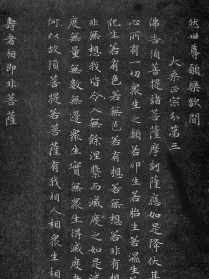 伏世尊願樂欲聞
大乘正宗分第三
佛告須菩提諸菩薩摩訶薩應如是降伏其
心所有一切眾生之類若卵生若胎生若濕生
化生若有色若無色若有想若無想若非有想
非無想我皆令入無餘涅槃而滅度之如是滅
度無量無數無邊眾生實無眾生得滅度
何以故須菩提若菩薩有我相人相眾生相
壽者相即非菩薩